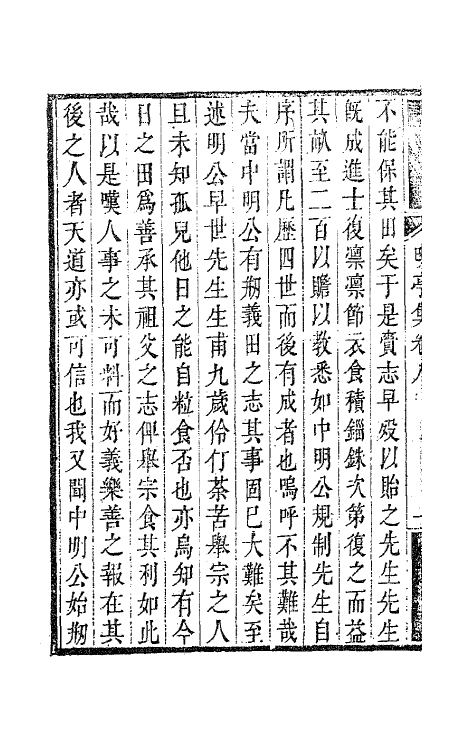 不能保其田矣于是賫志早歿以貽之先生先生
既成進士復凛凛節衣食積錙銖次第復之而益
其畝至二百以贍以教悉如中明公規制先生自
序所謂凡歷四世而後有成者也嗚呼不其難哉
夫當中明公有剏義田之志其事固已大難矣至
述明公早世先生生甫九歲伶仃荼苦舉宗之人
且未知孤兒他日之能自粒食否也亦烏知有今
日之田爲善承其祖父之志俾舉宗食其利如此
哉以是嘆人事之未可料而好義樂善之報在其
後之人者天道亦或可信也我又聞中明公始剏